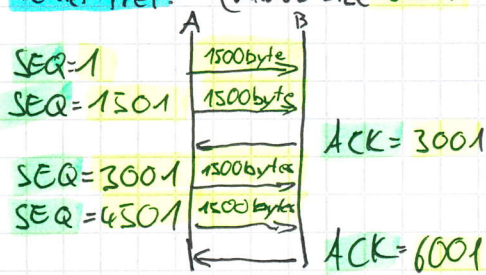 A B
SEQ=1 1500byte
SEQ=1501 1500bytes
ACK=3001
SEQ=3001 1500bytes
SEQ=4501 1500bytes
ACK=6001